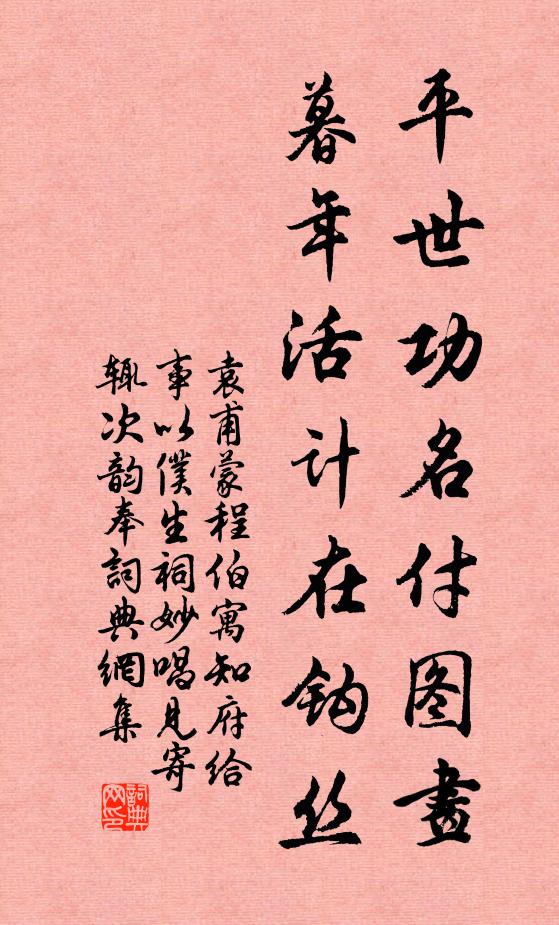 平世功名付图畫
暮年活计在钩丝
袁甫蒙程伯寓知府给
事以僕生祠妙唱見寄
辄次韵奉詞典網集
詞典
网印